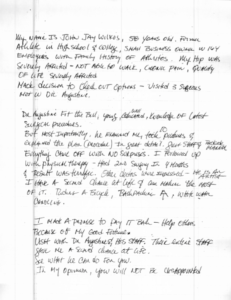 My name is John Jay Wilkes, 58 years old. Former
athlete in high school & college, small business owner w/ my
employees with family history of arthritis. My hip was
severely affected - not able to walk, chronic pain, quality
of life severely affected.
Made decision to check out options - visited 3 surgeons
Dr. Augustine.
Dr. Augustine fit the bill, young, knowledge of latest
surgical procedures.
But most importantly - he examined me, took pictures &
explained the plan (personal) in great detail. Dear staff
Everything came off with no surprises. I followed up
with physical therapy - had 2nd surgery in 8 months
& result was terrific.
I have a second chance at life & am making the most
of it. with
I made a promise to pay it back - help others
because of my good fortune.
Visit with Dr. Augustine & his staff. Their entire staff
gave me a second chance at life.
See what he can do for you.
In my opinion, you will not be disappointed